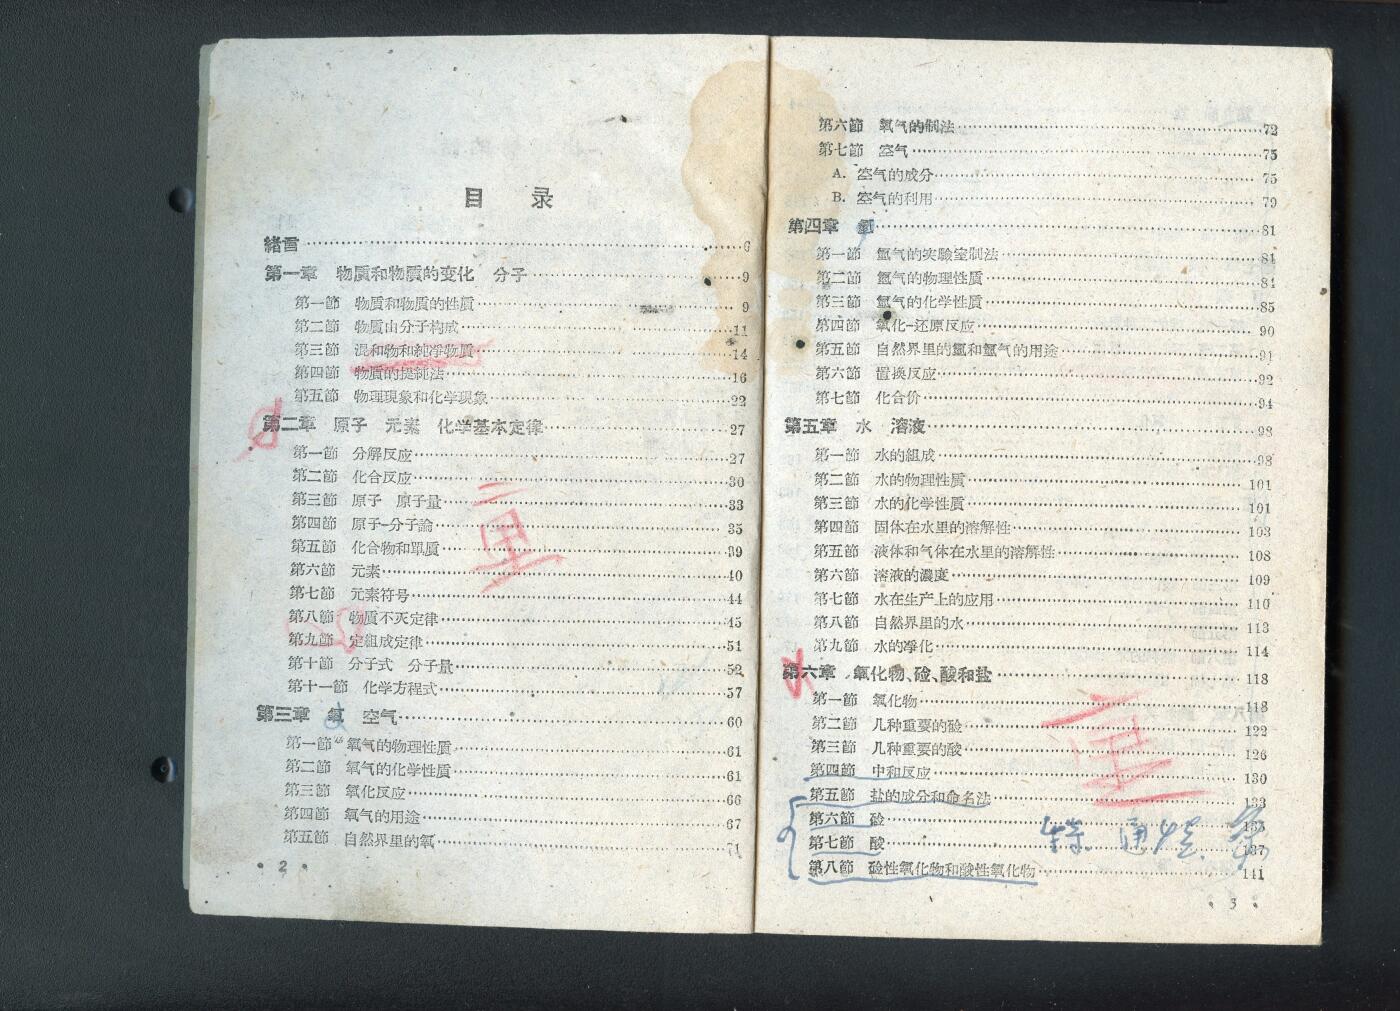 目 录
緒言 6
第一章 物质和物质的变化 分子 9
第一節 物质和物质的性质 9
第二節 物质由分子构成 11
第三節 混和物和純净物质 14
第四節 物质的提純法 16
第五節 物理現象和化学現象 22
第二章 原子 元素 化学基本定律 27
第一節 分解反应 27
第二節 化合反应 30
第三節 原子 原子量 33
第四節 原子-分子論 35
第五節 化合物和單质 39
第六節 元素 40
第七節 元素符号 44
第八節 物质不灭定律 45
第九節 定組成定律 51
第十節 分子式 分子量 52
第十一節 化学方程式 57
重
第三章 氧 空气 60
第一節 氧气的物理性质 61
第二節 氧气的化学性质 61
第三節 氧化反应 66
第四節 氧气的用途 67
第五節 自然界里的氧 71
• 2 •
第六節 氧气的制法 72
第七節 空气 75
A. 空气的成分 75
B. 空气的利用 79
第四章 氫 81
第一節 氫气的实驗室制法 81
第二節 氫气的物理性质 84
第三節 氫气的化学性质 85
第四節 氧化-还原反应 90
第五節 自然界里的氫和氫气的用途 91
第六節 置換反应 92
第七節 化合价 94
第五章 水 溶液 98
第一節 水的組成 98
第二節 水的物理性质 101
第三節 水的化学性质 101
第四節 固体在水里的溶解性 103
第五節 液体和气体在水里的溶解性 108
第六節 溶液的濃度 109
第七節 水在生产上的应用 110
第八節 自然界里的水 113
第九節 水的净化 114
第六章 氧化物、硷、酸和盐 118
第一節 氧化物 118
第二節 几种重要的硷 122
第三節 几种重要的酸 126
第四節 中和反应 130
第五節 盐的成分和命名法 133
第六節 硷 135
第七節 酸 137
第八節 硷性氧化物和酸性氧化物 141
重
• 3 •